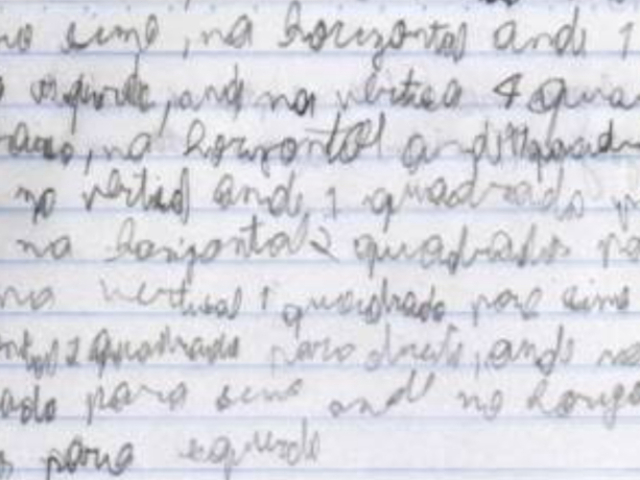 cima, na horizontal ande 1
esquerda, ande na vertical 4 qua
baixo, na horizontal ande 1 quadra
na vertical ande 1 quadrado p
na horizontal 2 quadrados pa
na vertical 1 quadrado para cima
2 quadrado para direita, ande na
ado para cima ande na horizo
para esquerda